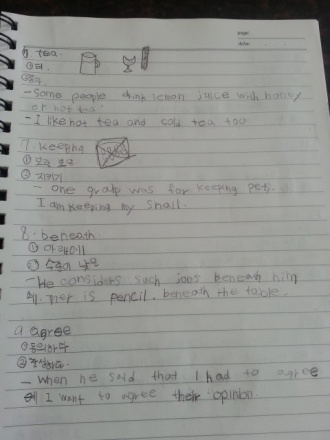 page:
date:
tea
① 차
- Some people drink lemon juice with honey
or hot tea
- I like hot tea and cold tea too
7. Keeping
② 지키기
- one group was for keeping pets.
I am keeping my snail.
8. beneath
① 아래에
② 수준이 낮은
- He considers such jobs beneath him
예. ther is pencil. beneath the table.
9 agree
① 동의하다
② 찬성하다
- When he said that I had to agree
예 I want to agree their opinion